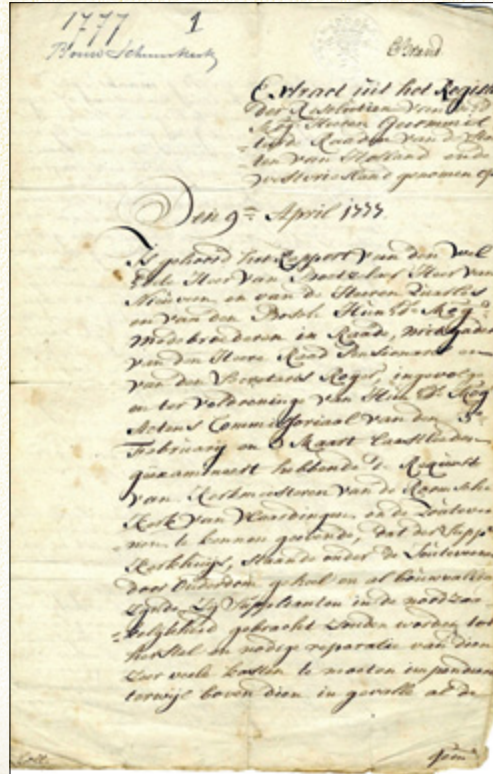 1777 1
Bouw Schuurkerk
Extract uit het Regist
der Resolutien van
Mog: Heeren Gecommit
teerde Raaden van de Sta
ten van Holland ende
Westvriesland genomen op
Den 9e April 1777.
Is gehoord het Rapport van den Wel
Edele Heer van Heer van
en van de Heeren Quarles
en van den Bosch Hun Ed: Mog:
Medebroederen in Raade, mitsgaders
van den Heere Raad Pensionaris en
van den Secretaris Royer, ingevolge
en ter voldoeninge van Hun Ed: Mog:
Actens Commissoriaal van den 5e
February en Maart laastleeden
geexamineert hebbende 't Request
van Kerkmeesteren van de Roomsche
Kerk van Vlaardingen en de Zouteve
nen te kennen gevende, dat der Supp
Kerkhuijs, staande onder de Zouteveen
door Ouderdom geheel en al bouwvallig
zynde, zy Supplianten in de noodzaa
kelykheid gebracht zouden worden tot
herstel en nodige reparatie van dien
zeer veele kosten te moeten impendeeren
terwyl boven dien in gevalle al de